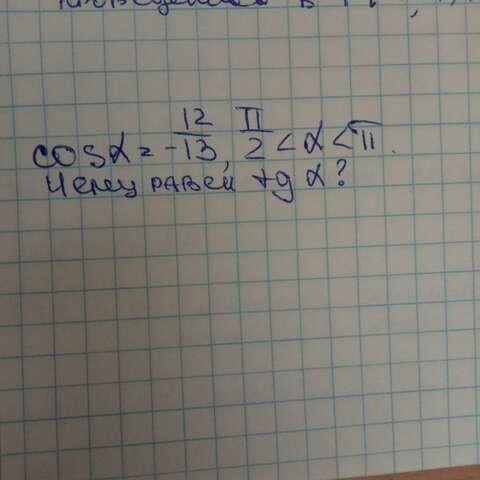 cosα = -12/13, π/2 < α < π.
Чему равен tg α?